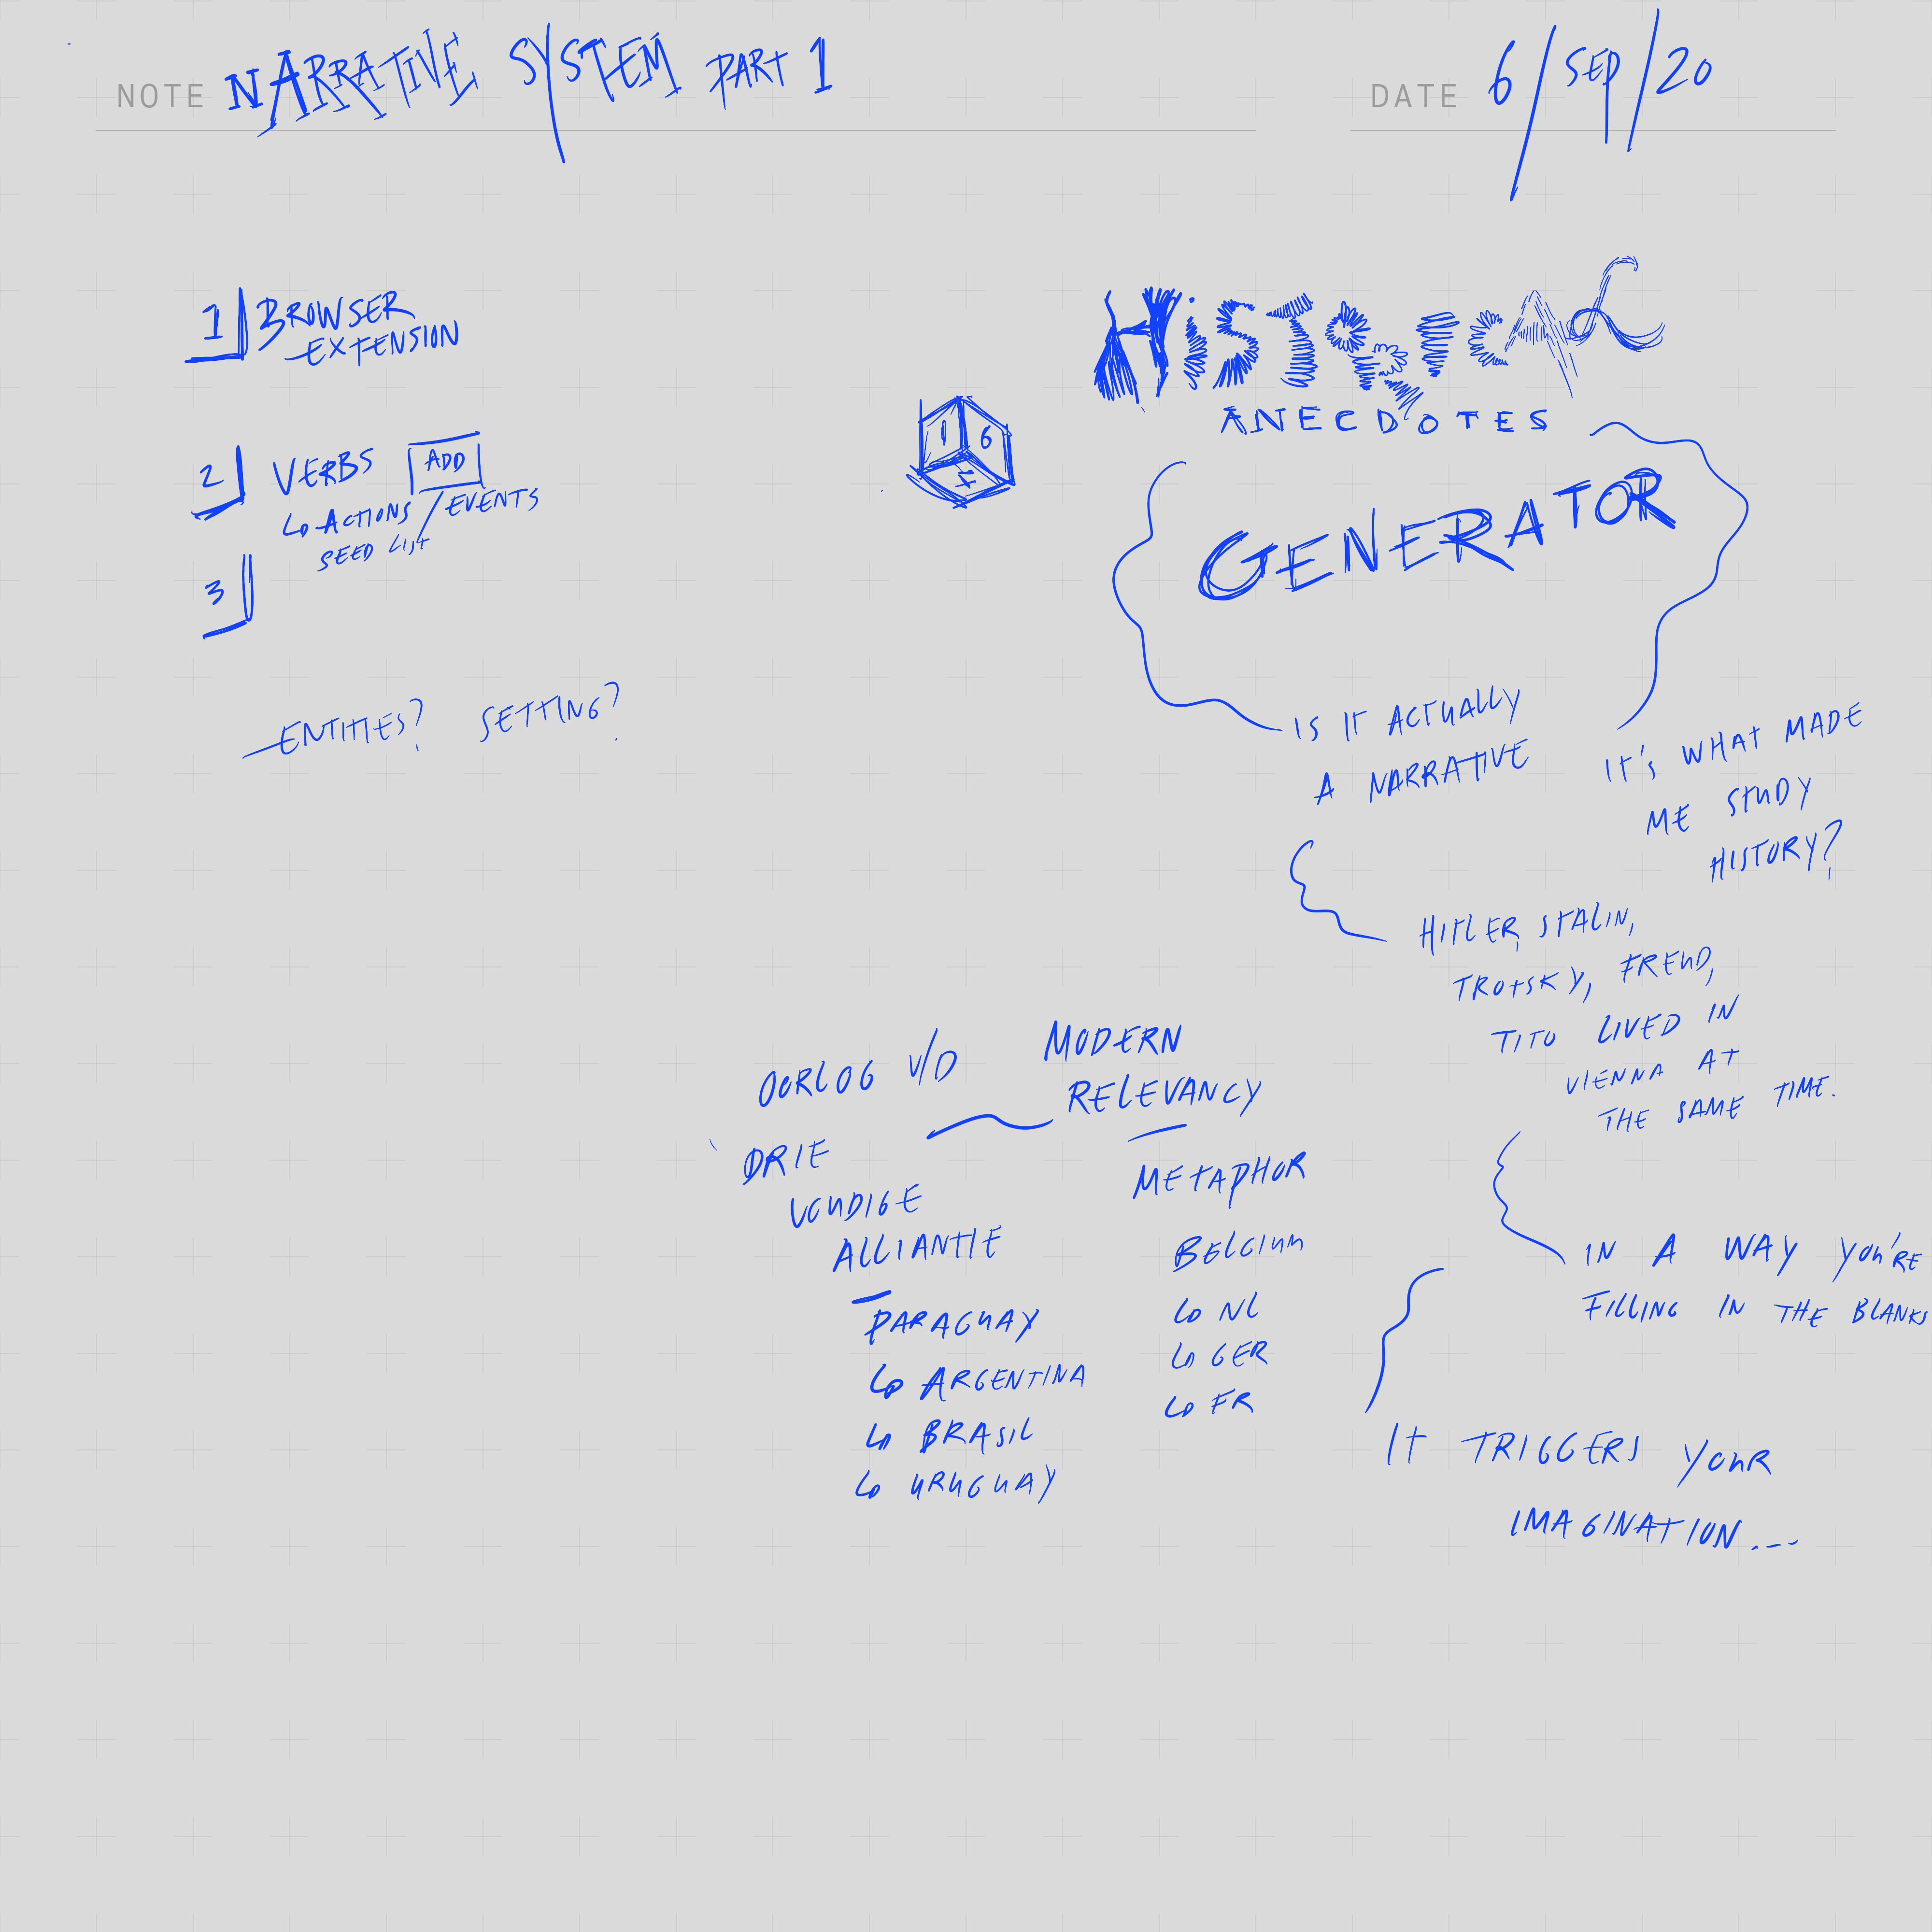 NOTE NARRATIVE SYSTEM PART 1
DATE 6/SEP/20
1] BROWSER
EXTENSION
2] VERBS ADD
ACTIONS/EVENTS
SEED LIST
3]
ENTITIES? SETTING?
HiSTORICAL
ANECDOTES
GENERATOR
1 6
IS IT ACTUALLY
A NARRATIVE
IT'S WHAT MADE
ME STUDY
HISTORY?
HITLER, STALIN,
TROTSKY, FREUD,
TITO LIVED IN
VIENNA AT
THE SAME TIME.
IN A WAY YOU'RE
FILLING IN THE BLANKS
IT TRIGGERS YOUR
IMAGINATION...
MODERN
RELEVANCY
METAPHOR
BELGIUM
NL
GER
FR
OORLOG V/D
DRIE
VOUDIGE
ALLIANTIE
PARAGUAY
ARGENTINA
BRASIL
URUGUAY